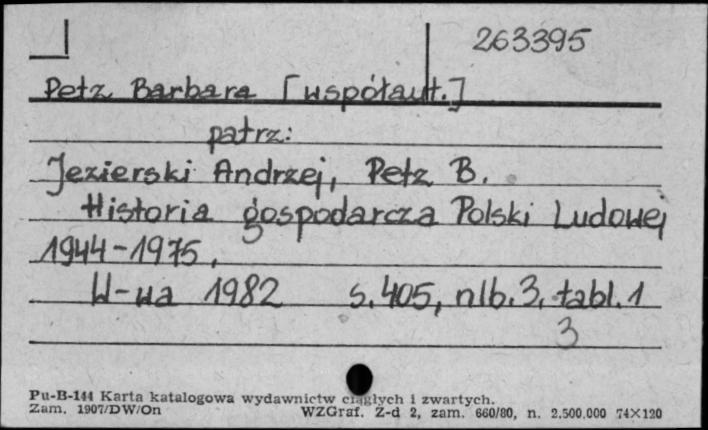 263395
Petz Barbara [współaut.]
patrz:
Jezierski Andrzej, Petz B.
Historia gospodarcza Polski Ludowej
1944-1975.
W-wa 1982 s. 405, nlb. 3, tabl. 1
3
Pu-B-144 Karta katalogowa wydawnictw ciągłych i zwartych.
Zam. 1907/DW/On WZGraf. Z-d 2, zam. 660/80, n. 2.500.000 74×120